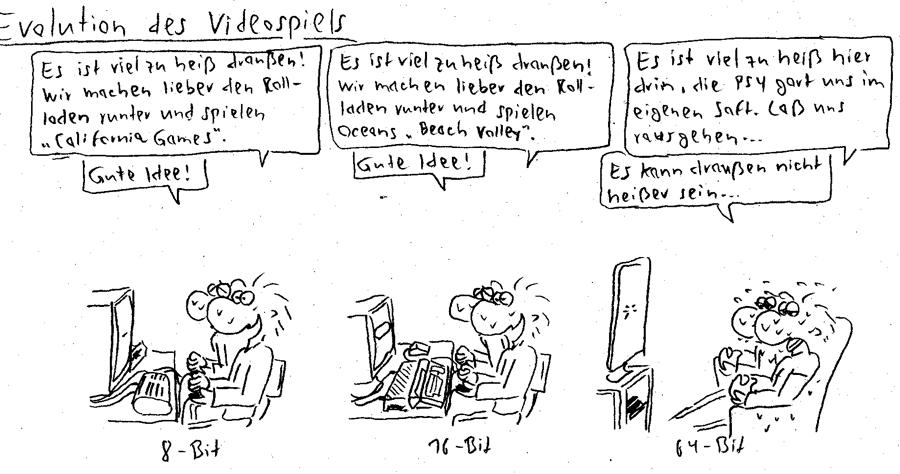 Evolution des Videospiels
Es ist viel zu heiß draußen!
Wir machen lieber den Roll-
laden runter und spielen
„California Games".
Gute Idee!
Es ist viel zu heiß draußen!
Wir machen lieber den Roll-
laden runter und spielen
Oceans „Beach Volley".
Gute Idee!
Es ist viel zu heiß hier
drin, die PS4 gart uns im
eigenen Saft. Laß uns
rausgehen...
Es kann draußen nicht
heißer sein...
8-Bit
16-Bit
64-Bit